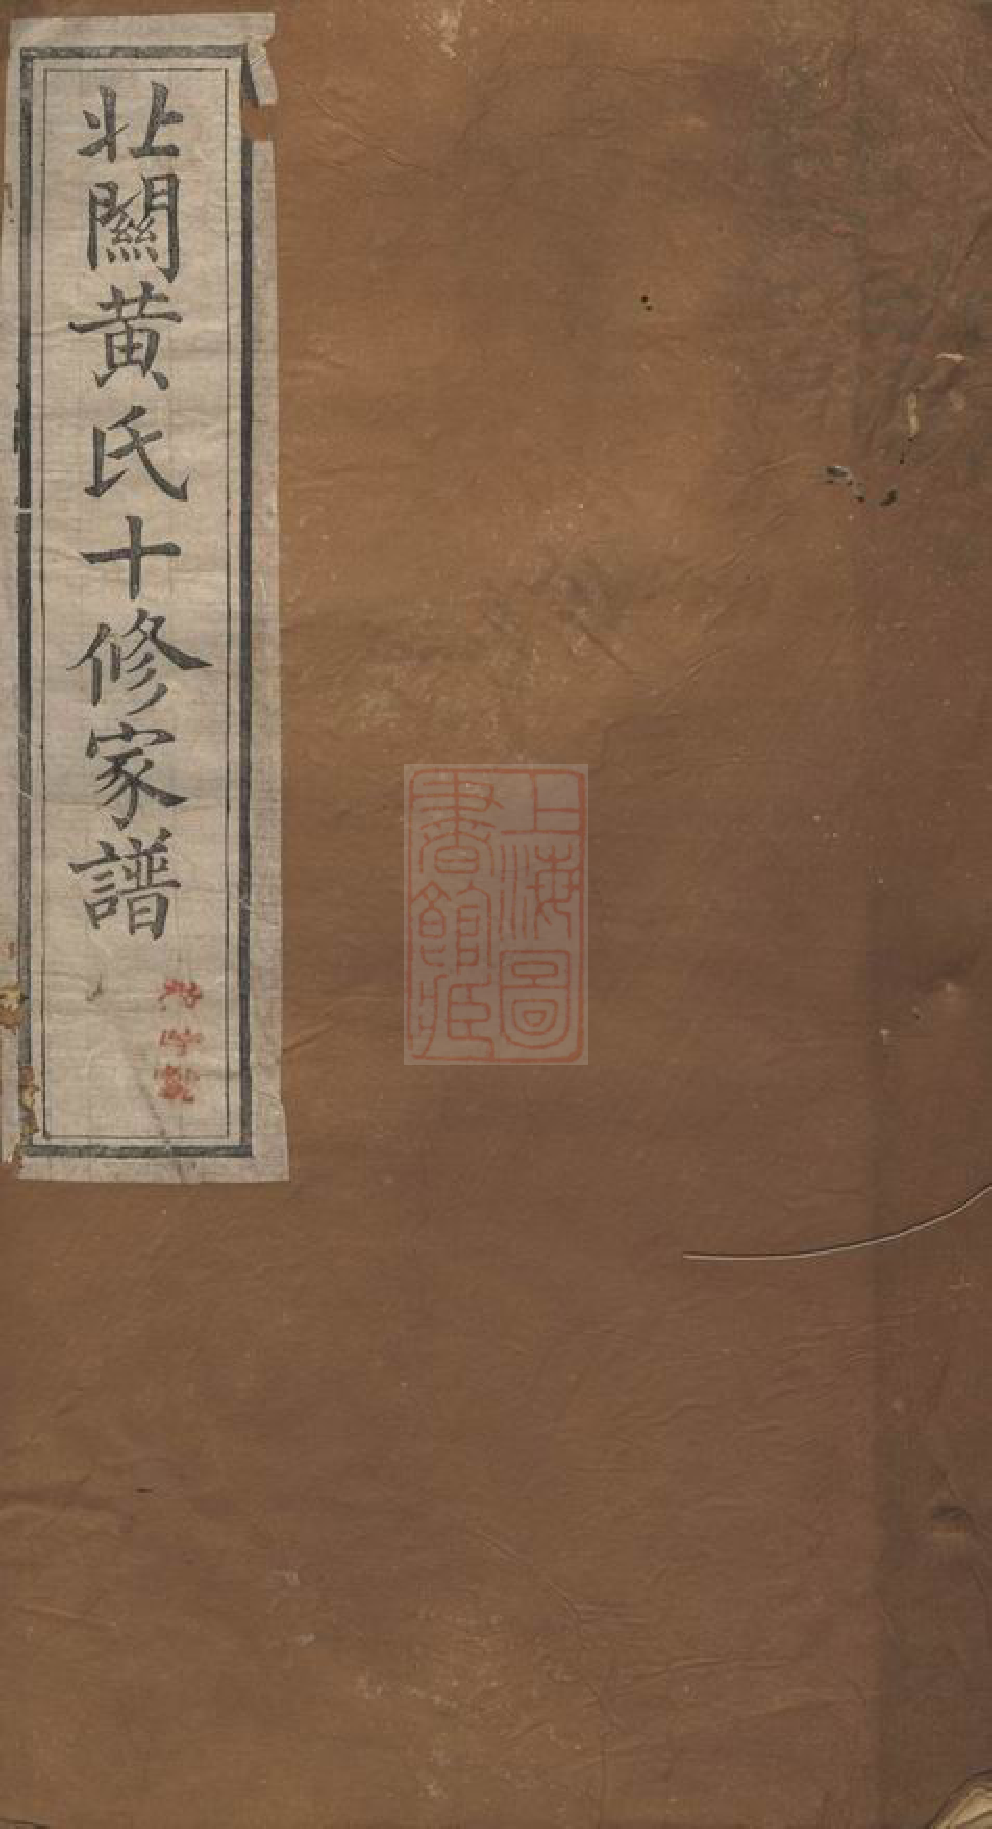 北關黃氏十修家譜
上海圖
書館藏